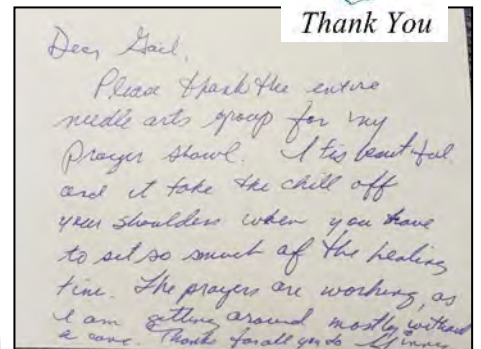 Thank You
Dear Gail,
Please thank the entire
needle arts group for my
Prayer Shawl. It is beautiful
and it take the chill off
your shoulders when you have
to sit so much of the healing
time. The prayers are working, as
I am getting around mostly without
a cane. Thanks for all you do